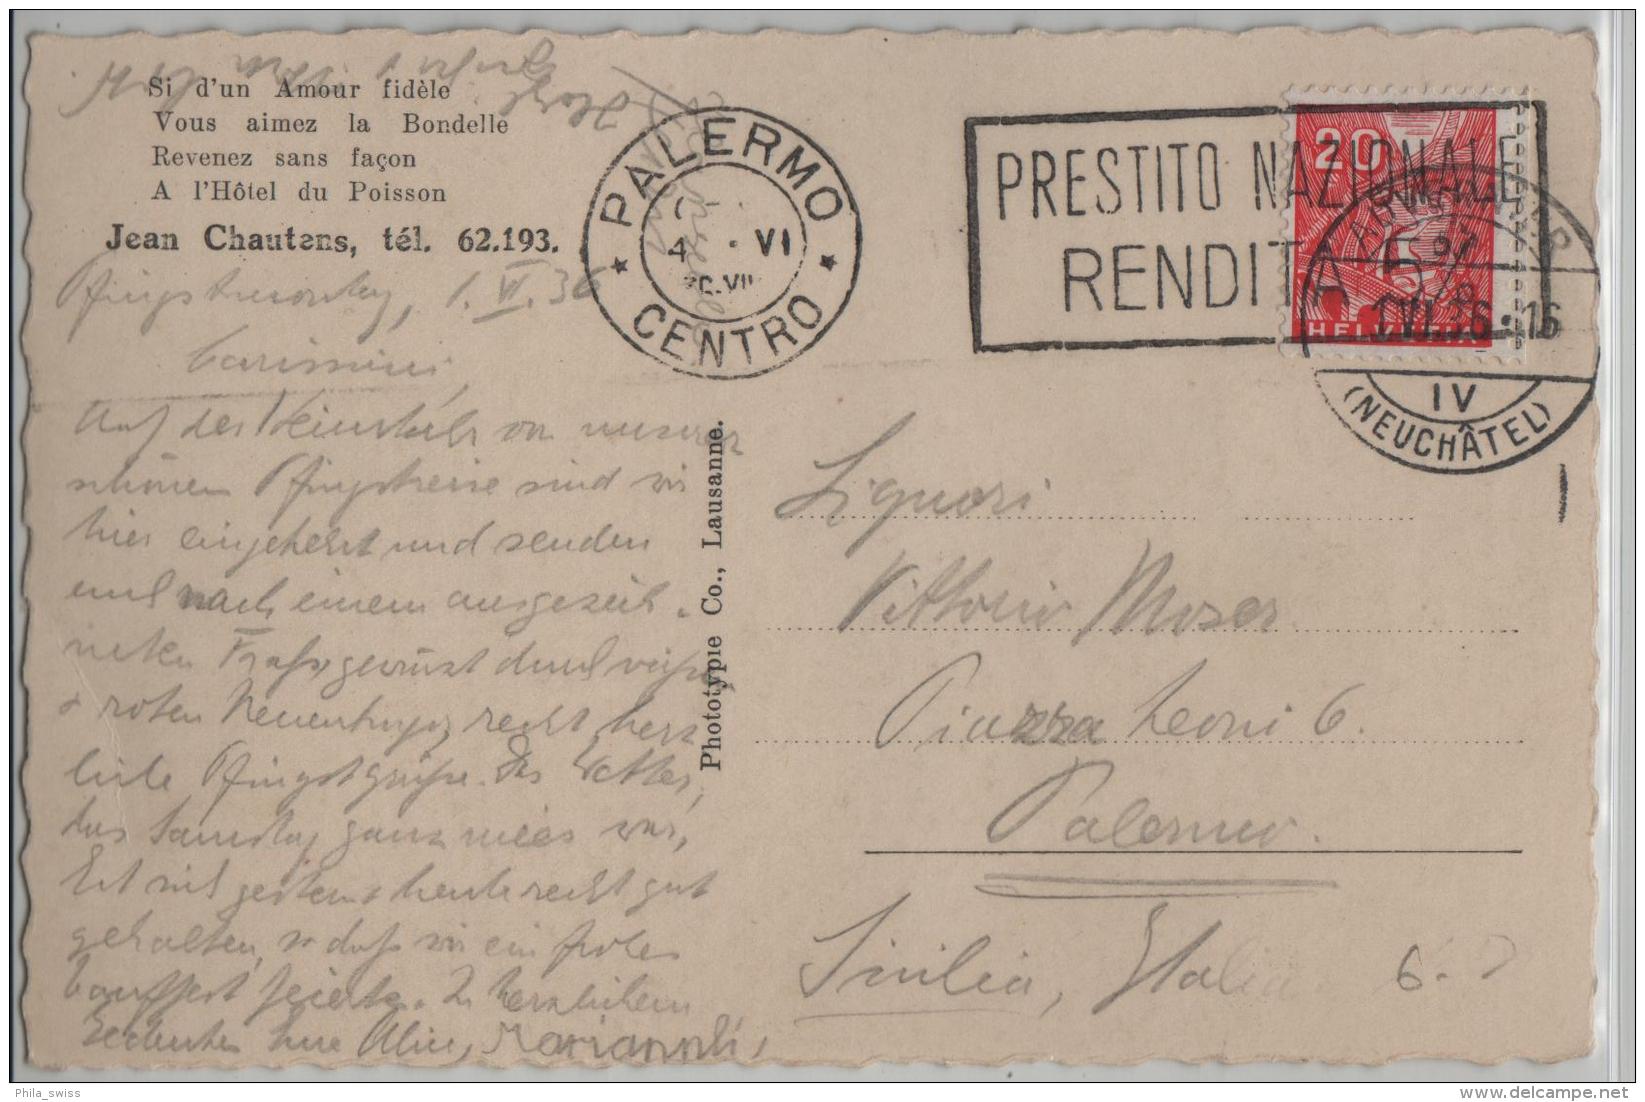 Si d'un Amour fidèle
Vous aimez la Bondelle
Revenez sans façon
A l'Hôtel du Poisson
Jean Chautens, tél. 62.193.
Pfingstmontag, 1. VI. 36
Carissimi,
Auf der Heimkehr von unserer
schönen Pfingstreise sind wir
hier eingekehrt und senden
nach einem ausgezeich-
neten Frass, gewürzt durch
& roten Neuenburger, recht herz
liche Pfingstgrüsse. Das Wetter,
das Samstag ganz mies war,
hat sich gestern & heute recht gut
gehalten, so dass wir ein frohes
feierten. In herzlichem
Gedenken Eure Alice, Mariannli,
PALERMO
4 · VI
CENTRO
PRESTITO NAZIONALE
RENDITA
20
HELVETIA
1.VI.36.-16
IV
(NEUCHÂTEL)
Phototypie Co., Lausanne.
Liguori
Vittorio Moser
Piazza Leoni 6.
Palermo.
Sicilia, Italia
6.
Phila_swiss
delcampe.net